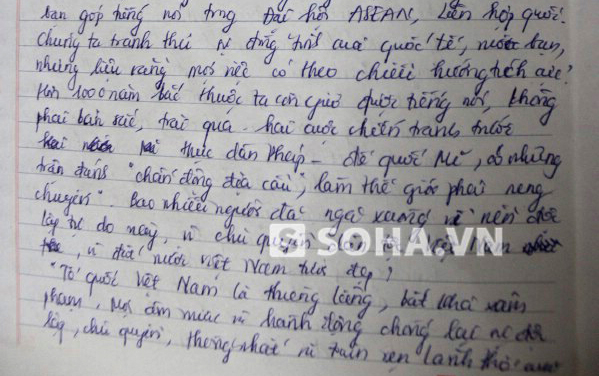 bạn góp tiếng nói trong Đại hội ASEAN, Liên hợp quốc.
Chúng ta tranh thủ sự đồng tình của quốc tế, nước bạn,
nhưng liệu rằng mọi việc có theo chiều hướng tích cực?
Hơn 1000 năm bắc thuộc ta còn giữ được tiếng nói, không
phai bản sắc, trải qua hai cuộc chiến tranh trước
thực dân Pháp - đế quốc Mĩ, có những
trận đánh "chấn động địa cầu", làm thế giới phải "rung
chuyển". Bao nhiêu người đã ngã xuống vì nền độc
lập tự do này, vì chủ quyền dân tộc Việt Nam
vì đất nước Việt Nam tươi đẹp?
"Tổ quốc Việt Nam là thiêng liêng, bất khả xâm
phạm, mọi âm mưu và hành động chống lại nền độc
lập, chủ quyền, thống nhất và toàn vẹn lãnh thổ
SOHA.VN